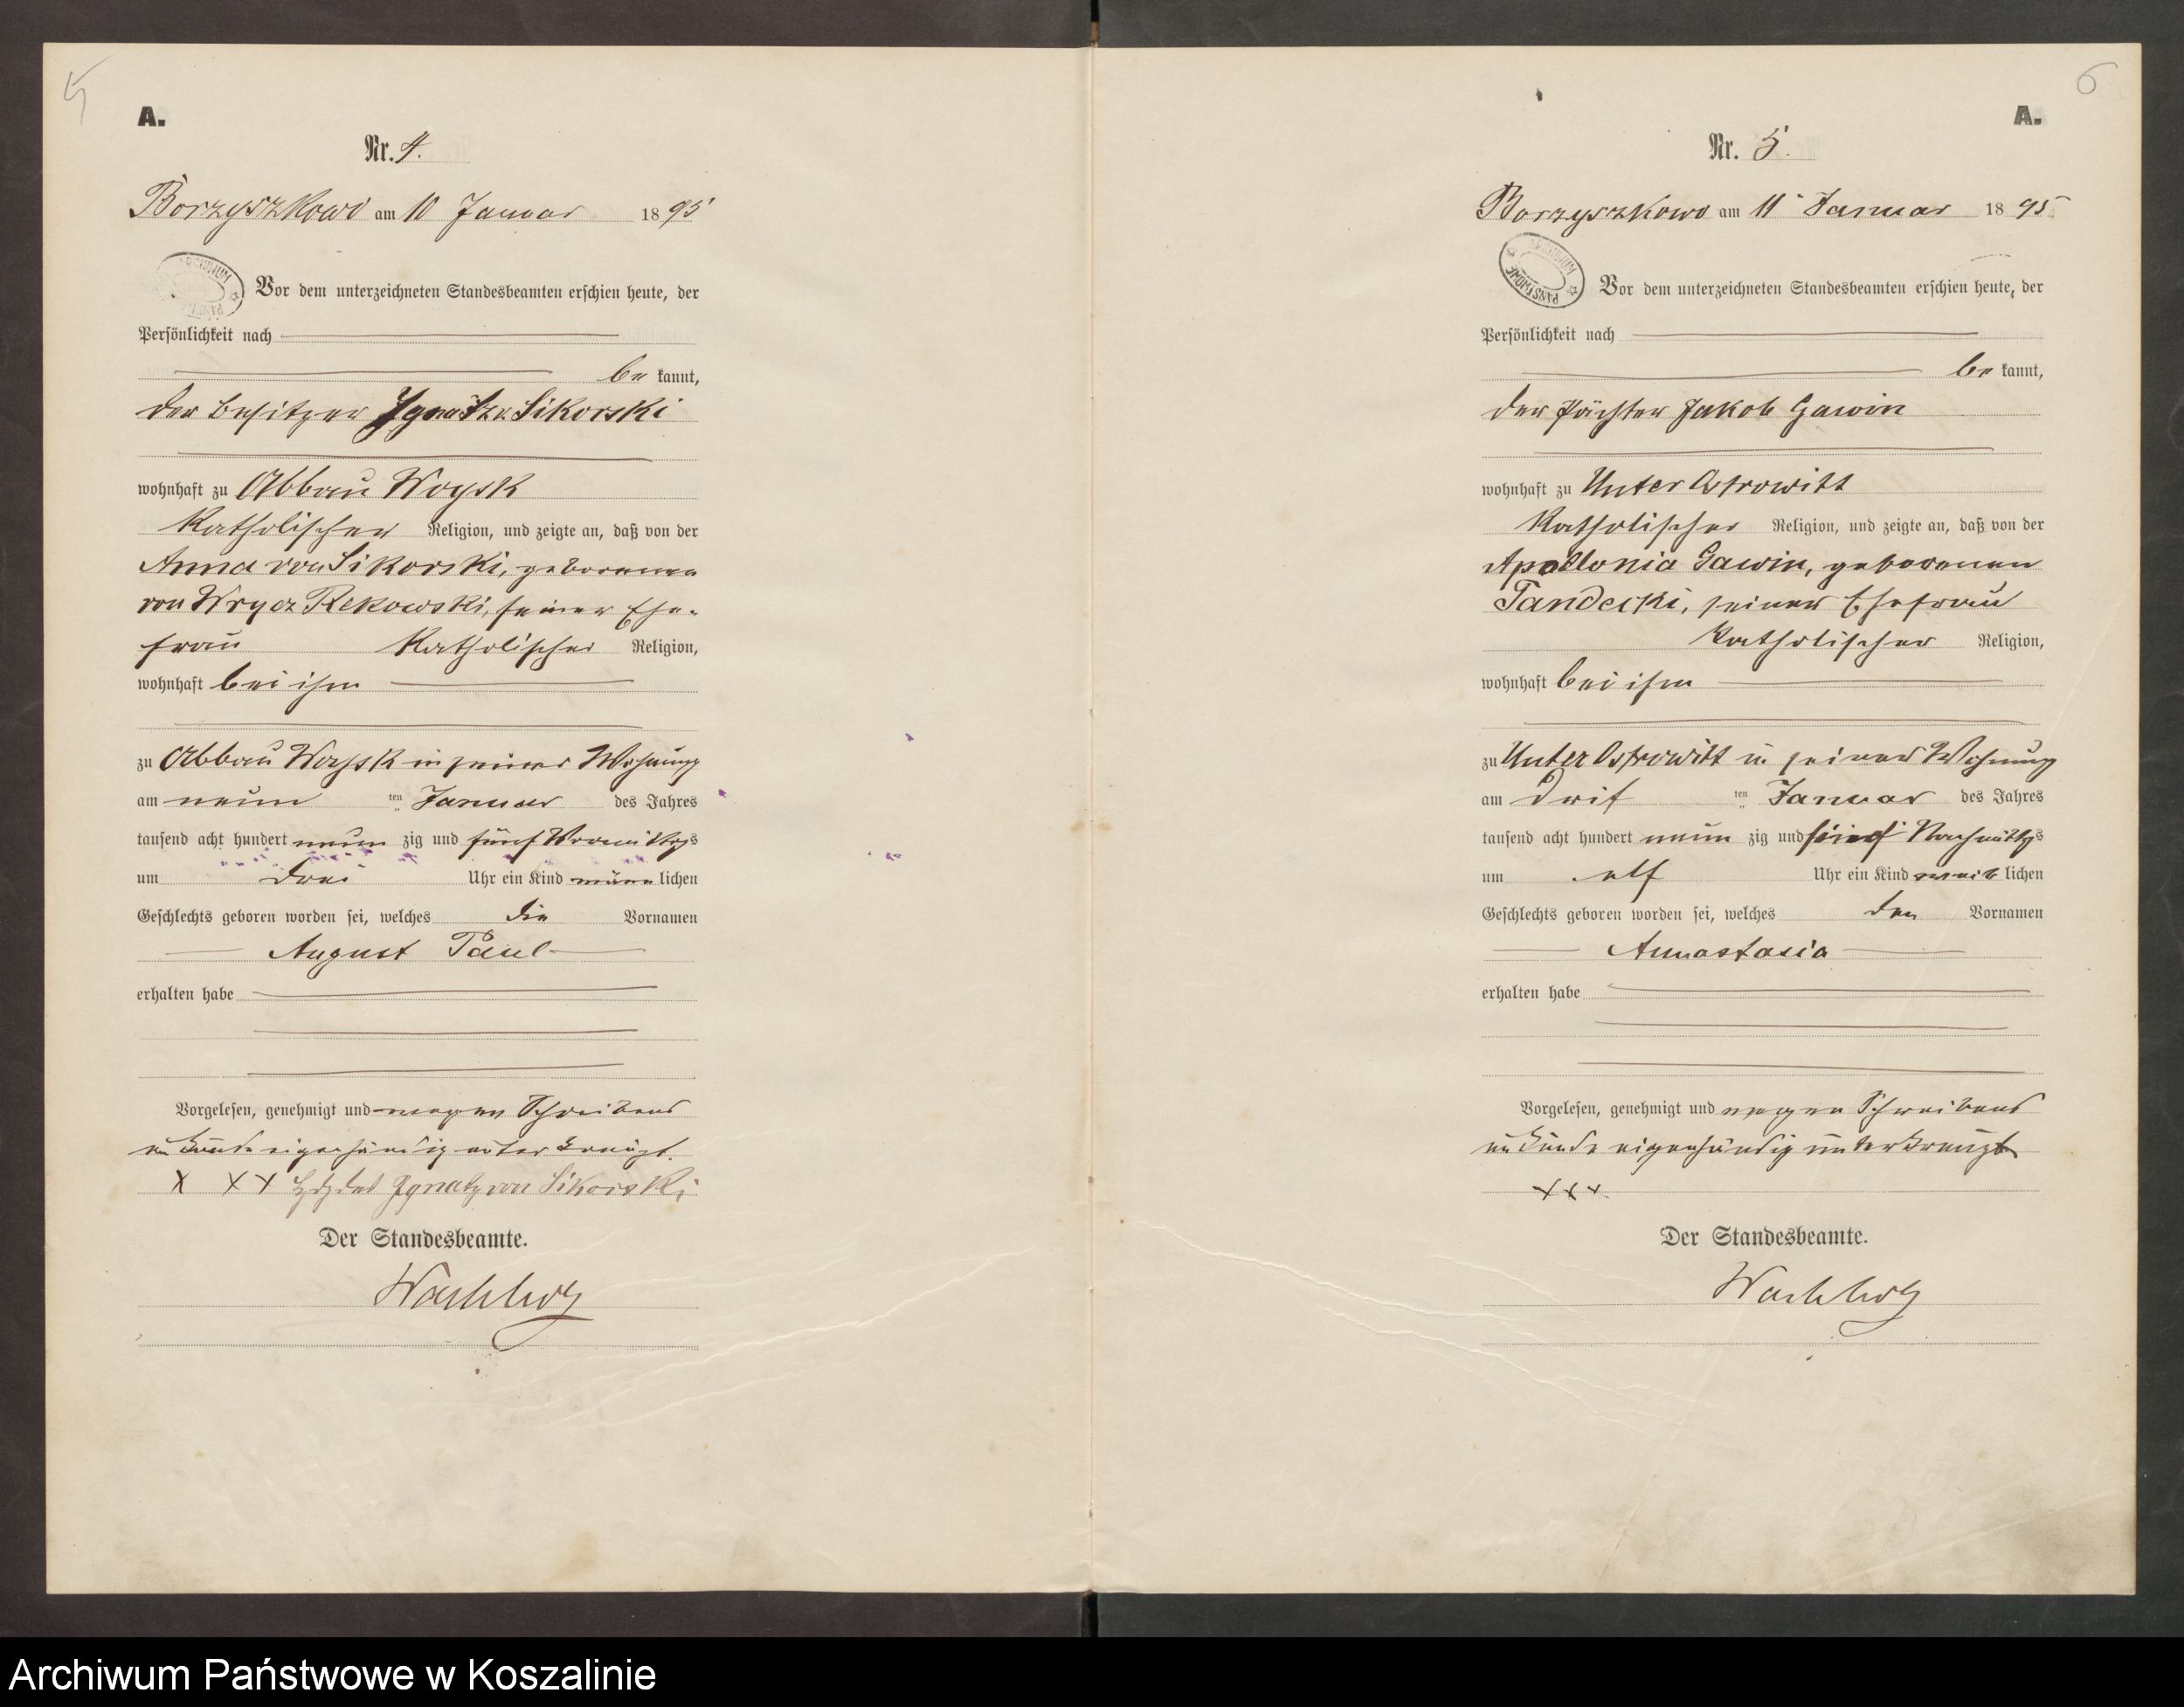 5
A.
Nr. 4.
Borzyszkowo am 10 Januar 1895
ARCHIWUM
Vor dem unterzeichneten Standesbeamten erschien heute, der
Persönlichkeit nach
be kannt,
der Besitzer Ignatz v. Sikorski
wohnhaft zu Abbau Woysk
katholischer Religion, und zeigte an, daß von der
Anna von Sikorski, geborenen
von Wrycz Rekowski, seiner Ehe-
frau katholischer Religion,
wohnhaft bei ihm
zu Abbau Woysk in seiner Wohnung
am neun ten Januar des Jahres
tausend acht hundert neun zig und fünf Vormittags
um drei Uhr ein Kind männ lichen
Geschlechts geboren worden sei, welches die Vornamen
August Paul
erhalten habe
Vorgelesen, genehmigt und wegen Schreibens
unkunde eigenhändig unterkreuzt.
X X X Ignatz von Sikorski
Der Standesbeamte.
Wachholz
6
A.
Nr. 5.
Borzyszkowo am 11 Januar 1895
ARCHIWUM PAŃSTWOWE
Vor dem unterzeichneten Standesbeamten erschien heute, der
Persönlichkeit nach
be kannt,
der Pächter Jakob Gawin
wohnhaft zu Unter Ostrowitt
katholischer Religion, und zeigte an, daß von der
Apollonia Gawin, geborenen
Tandecki, seiner Ehefrau
katholischer Religion,
wohnhaft bei ihm
zu Unter Ostrowitt in seiner Wohnung
am drit ten Januar des Jahres
tausend acht hundert neun zig und fünf Nachmittags
um elf Uhr ein Kind weib lichen
Geschlechts geboren worden sei, welches den Vornamen
Annastasia
erhalten habe
Vorgelesen, genehmigt und wegen Schreibens
unkunde eigenhändig unterkreuzt
XXX.
Der Standesbeamte.
Wachholz
Archiwum Państwowe w Koszalinie